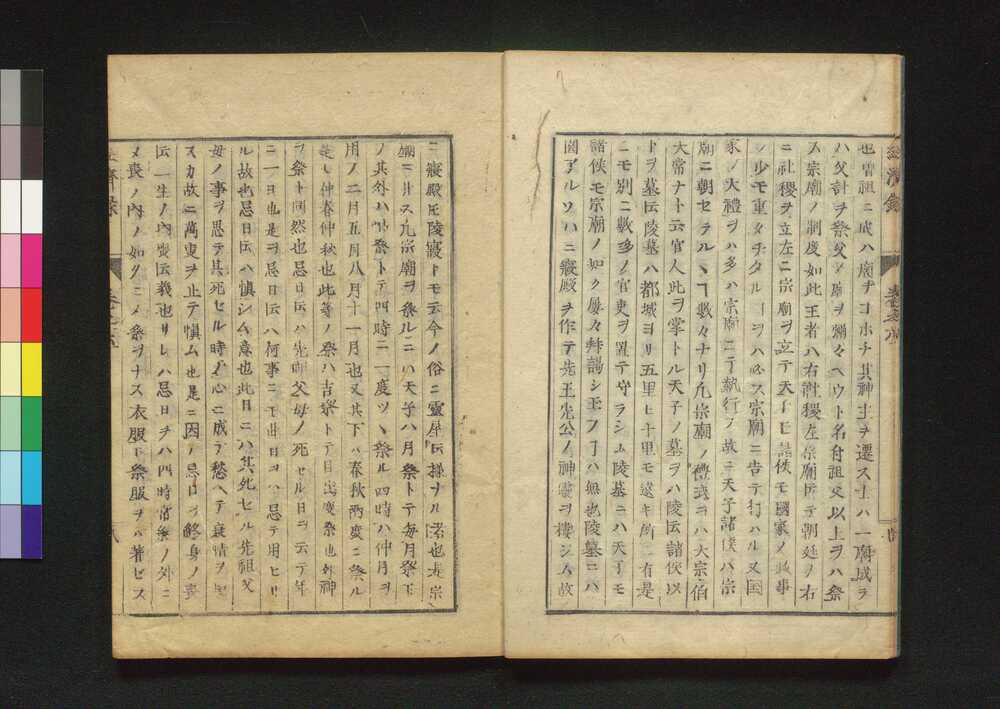 也曽祖ニ成ハ廟ヲコホチ其神主ヲ遷ス士ハ一廟成ヲ
ハ父計ヲ祭父ノ廟ヲ禰々ヘウト名付祖父以上ヲハ祭
ス宗廟ノ制度如此王者ハ右社稷左宗廟ニテ朝廷ノ右
ニ社稷ヲ立左ニ宗廟ヲ立テ天子モ諸侯モ國家ノ政事
少モ重タチタルコヲハ必ス宗廟ニ告テ行ハル又国
家ノ大禮ヲハ多ハ宗廟ニテ執行フ故ニ天子諸侯ハ宗
廟ニ朝セラルヽヿ數々ナリ凡宗廟ノ禮式ヲハ大宗伯
大常ナト云官人此ヲ掌トル天子ノ墓ヲハ陵云諸侯以
下ヲ墓云陵墓ハ都城ヨリ五里七十里モ遠キ所ニ有是
ニモ別ニ數多ノ官吏ヲ置テ守ラシム陵墓ニハ天子モ
諸侯モ宗廟ノ如ク屢々拜謁シ玉フヿハ無也陵墓ニハ
園アルソハニ寢殿ヲ作テ先王先公ノ神靈ヲ樓シム故
ニ寢殿ヲ陵寢トモ云今ノ俗ニ靈屋云樣ナル者也是宗
廟ニ非ス凡宗廟ヲ祭ルニハ天子ハ月祭トテ毎月祭玉
ノ其外ハ時祭トテ四時ニ一度ツヽ祭ル四時ハ仲月ヲ
用フ二月五月八月十一月也又其下ハ春秋兩度ニ祭ル
是レ仲春仲秋也此等ノ祭ハ吉祭トテ目出度祭也外神
ヲ祭ト同然也忌日云ハ先祖父母ノ死セル日ヲ云テ年
ニ一日也是ヲ忌日云ハ何事ニモ此日ヲハ忌テ用ヒサ
ル故也忌日云ハ慎シム意也此日ニハ其死セル先祖父
母ノ事ヲ思テ其死セル時ノ心ニ成テ愁ヘテ哀情ヲ
スカ故ニ萬事ヲ止テ慎ム也是ニ因ノ忌日ヲ終身ノ喪
云一生ノ内喪云義也サレハ忌日ヲハ四時常祭ノ外ニ
メ喪ノ内ノ如クニメ祭ヲナス衣服モ祭服ヲハ著セス